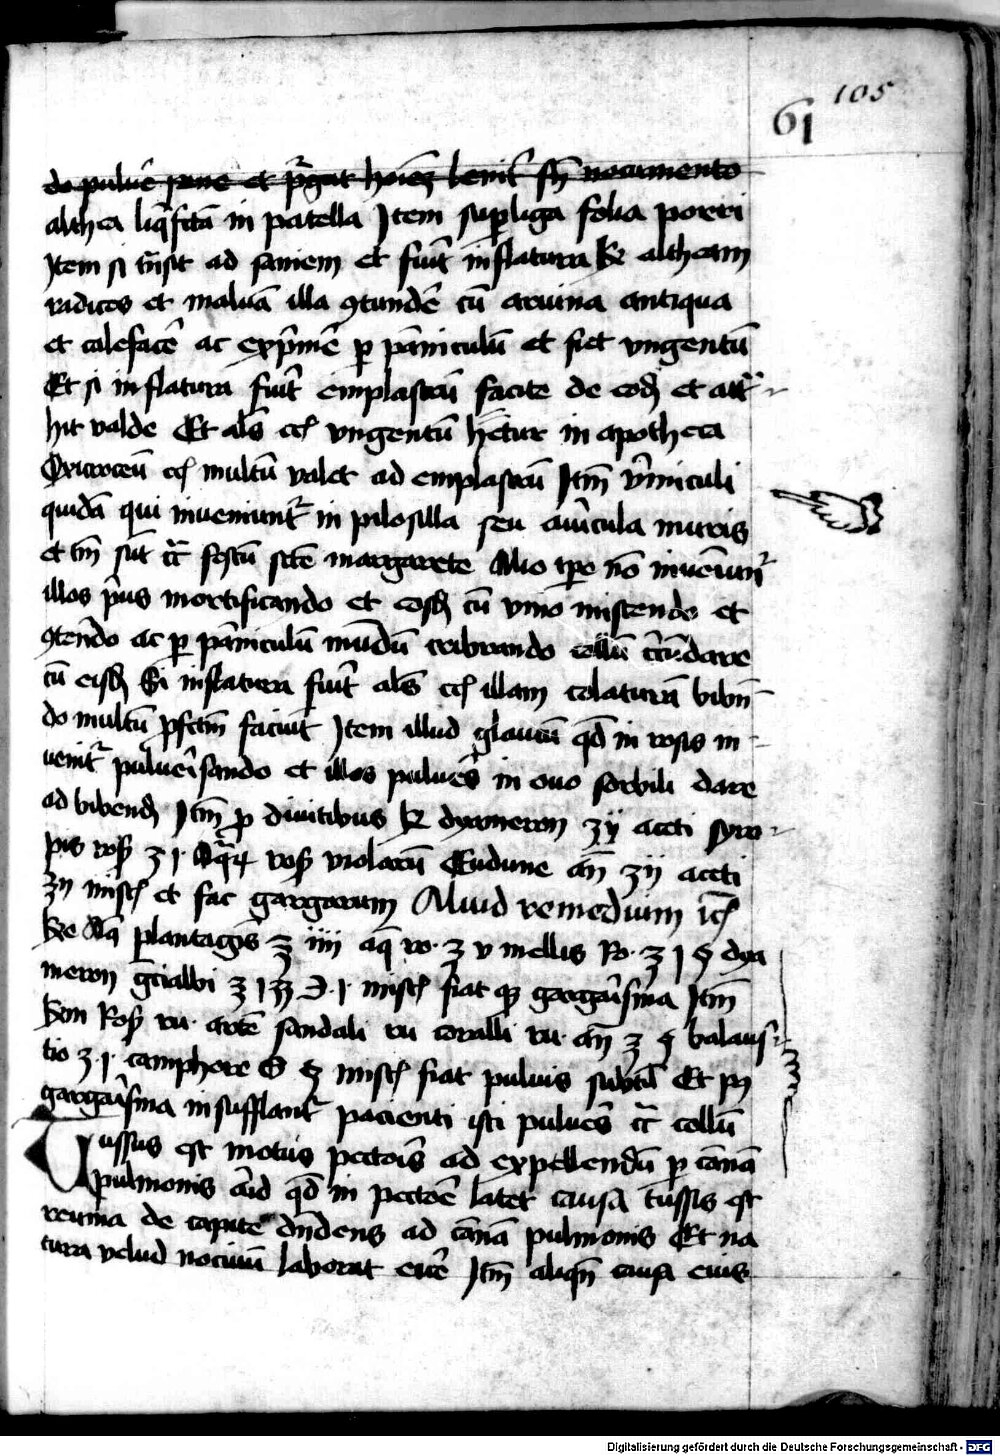 105
61
de pulvē sene et pꝛgat hoīez lenitꝰ sn̄ nocumento
althea liq̄fctā in patella Item supliga folia porri
Item si tn̄sit ad saniem et fuīt inflatura ꝶ altheam
radices et malvā illa ꝯtundē cū arvina antiqua
et calefacē ac exp̄mē ꝑ pāniculū et fiet vngentū
Et si inflatura fuīt emplastrū facite de eodꝫ et attᵃ
hit valde Et als̄ ecꝫ vngentū hētur in apotheca
Oxicroceū ecꝫ multū valet ad emplastrū Itm̄ v̄miculi
quidā qui inveniuntᷣ in pilosilla seu auricula muris
et tm̄ sūt cᷓ festū scte margarete Alio tꝑe nō inveniūtᷣ
illos pⁱus mortificando et eosdꝫ cū vino miscendo et
ꝯtēdo ac ꝑ pāniculū mūdū cribrando collū cⁱcūdare
cū eisdꝫ Si inflatura fuīt als̄ ecꝫ illam colaturā bibn̄
do multū ꝓfctm̄ faciūt Item illud glaucū qd̄ in rosis in
venitᷣ pulverisando et illos pulvēs in ovo sorbili dare
ad bibendꝫ Itm̄ ꝓ divitibus ꝶ dyameron ʒij aceti syro
pis roꝭ ʒ j Aq̄ꝝ roꝭ violarū Endivie an̄ ʒij aceti
ʒij miscꝫ et fac gargarism Aliud remedium
ꝶe Aq̄ plantagis ℥ iiij aq̄ ro. ℥ v mellis Ro. ℥ j ß dya
meron ʒ j ℈ j miscꝫ fiat gargarisma Itm̄
ꝶ Roꝭ ru. sandali ru coralli ru. an̄ ʒ ß balaus
tie ʒ j camphore ß miscꝫ fiat pulvis subtil Et pꝰ
gargarisma insufflantᷣ pacienti isti pulvēs cᷓ collū
Tussus est motus pectoris ad expellendū ꝑ cānā
pulmonis aliqd̄ qd̄ in pectore latet causa tussis est
reuma de capite dn̄dens ad cānā pulmonis Et na
tura velud nocivū laborat eicē Itm̄ aliqn̄ causa eius